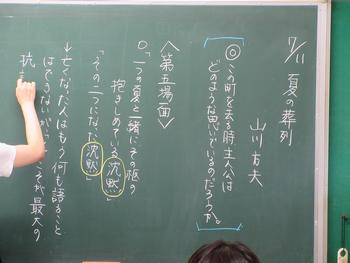 7/11 夏の葬列
山川方夫
◎この町を去る時主人公は
どのような思いでいるのだろうか。
〈第五場面〉
○「一つの夏と一緒にその柩の
抱きしめている沈黙」
「その二つになった沈黙」
↓亡くなった人はもう何も語ること
はできない
最大の
抗